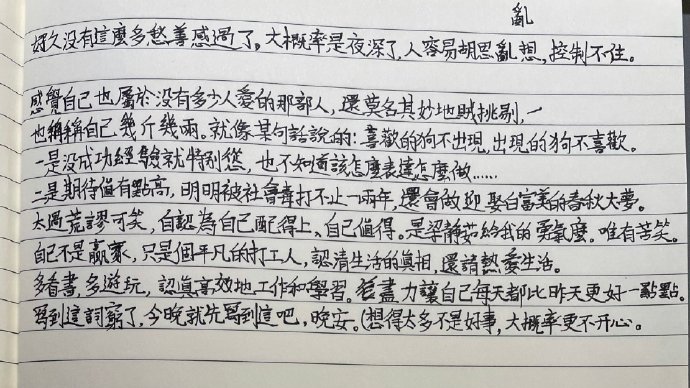 亂
好久没有這麽多愁善感過了。大概率是夜深了,人容易胡思亂想,控制不住。
感覺自己也屬於没有多少人愛的那部人,還莫名其妙地賊挑剔,一
也稱稱自己幾斤幾兩。就像某句話說的:喜歡的狗不出現,出現的狗不喜歡。
一是没成功經驗就特别慫,也不知道該怎麽表達怎麽做……
二是期待值有點高,明明被社會毒打不止一兩年,還會做迎娶白富美的春秋大夢。
太過荒謬可笑,自認為自己配得上、自己值得。是梁静茹給我的勇氣麽。唯有苦笑。
自己不是贏家,只是個平凡的打工人,認清生活的真相,還請熱愛生活。
多看書,多遊玩,認真高效地工作和學習。盡力讓自己每天都比昨天更好一點點。
寫到這詞窮了,今晚就先寫到這吧,晚安。(想得太多不是好事,大概率更不开心。